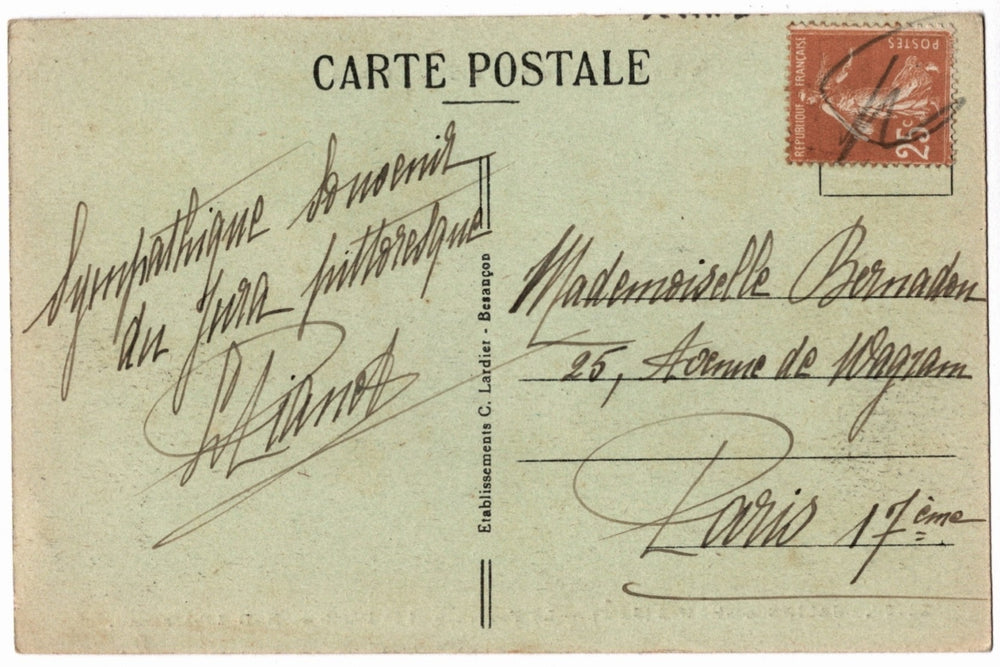 CARTE POSTALE
REPUBLIQUE FRANÇAISE
POSTES
25c
Sympathique Souvenir
du Jura pittoresque
Etablissements C. Lardier - Besançon
Mademoiselle Bernadon
25, Avenue de Wagram
Paris 17ème